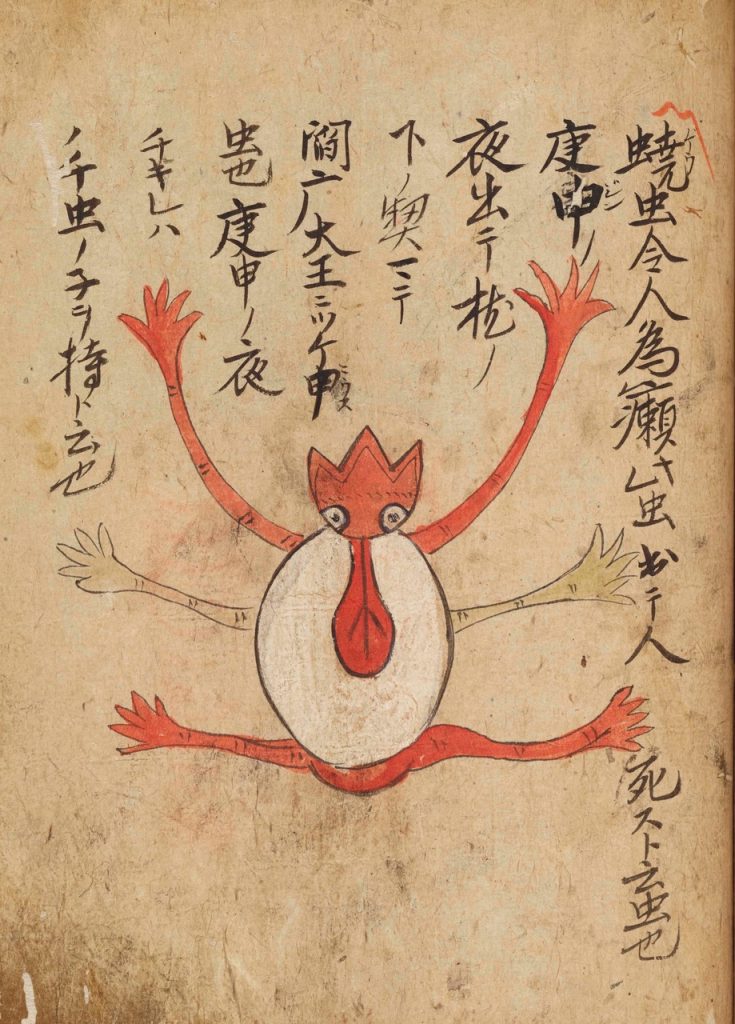 蟯虫令人為癩サ此虫出テ人
死スト云虫也
庚申ノ
夜出テ枕ノ
下ノ契マニテ
閻广大王ニツケ申
虫也庚申ノ夜
チキレハ
ノ千虫ノ子ヲ持ト云也